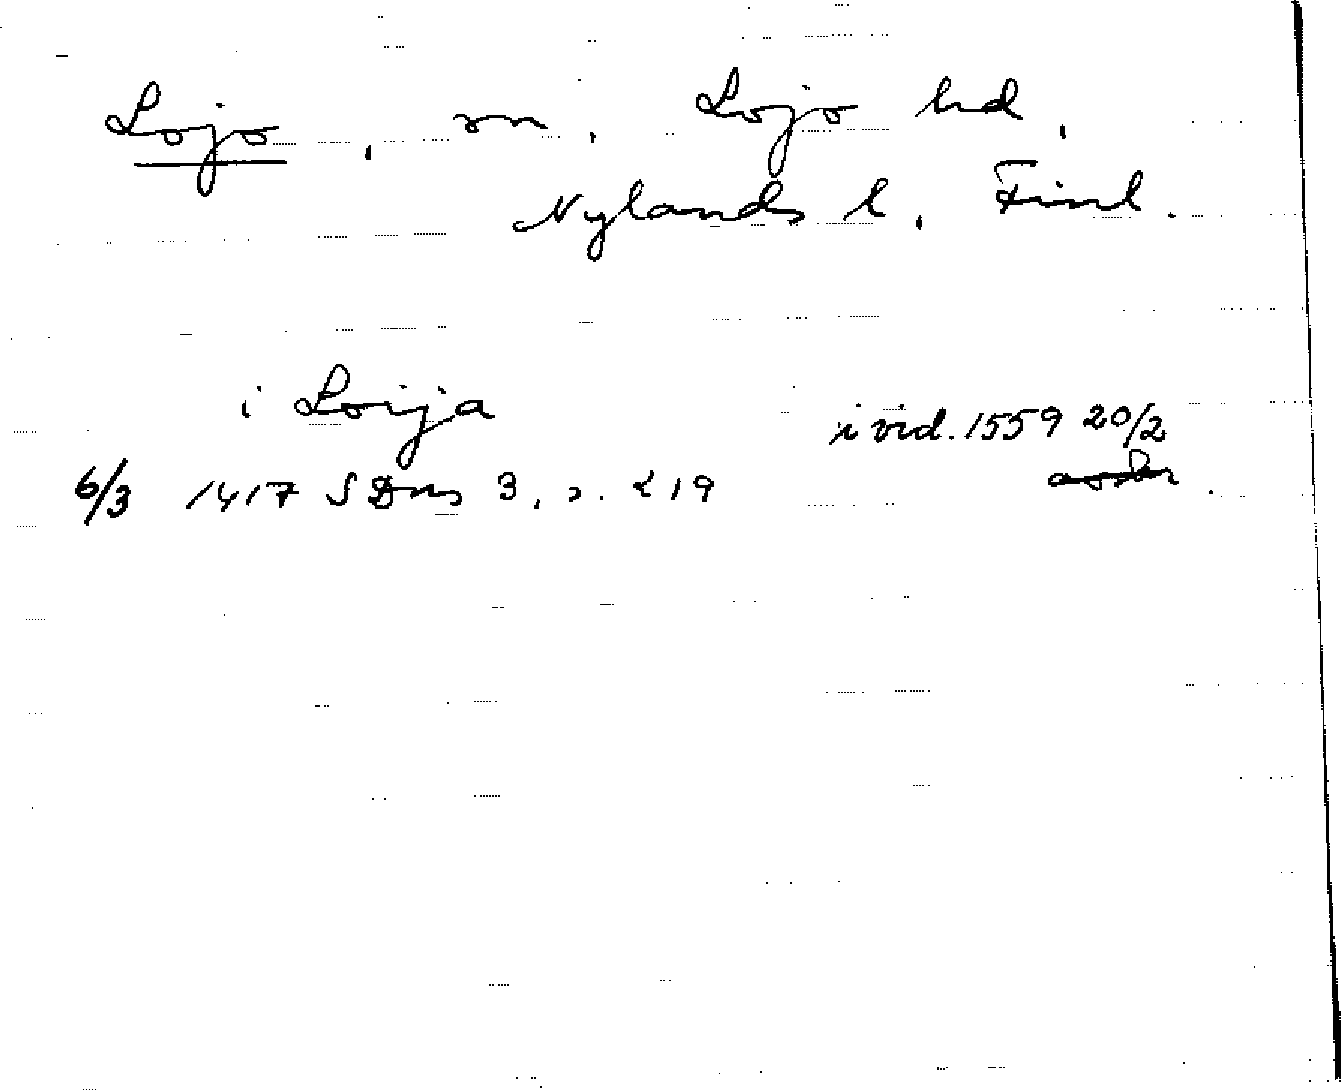 Lojo, sn, Lojo hd,
Nylands l, Finl.
i Loija i vid. 1559 20/2
6/3 1417 SDns 3, s. 219